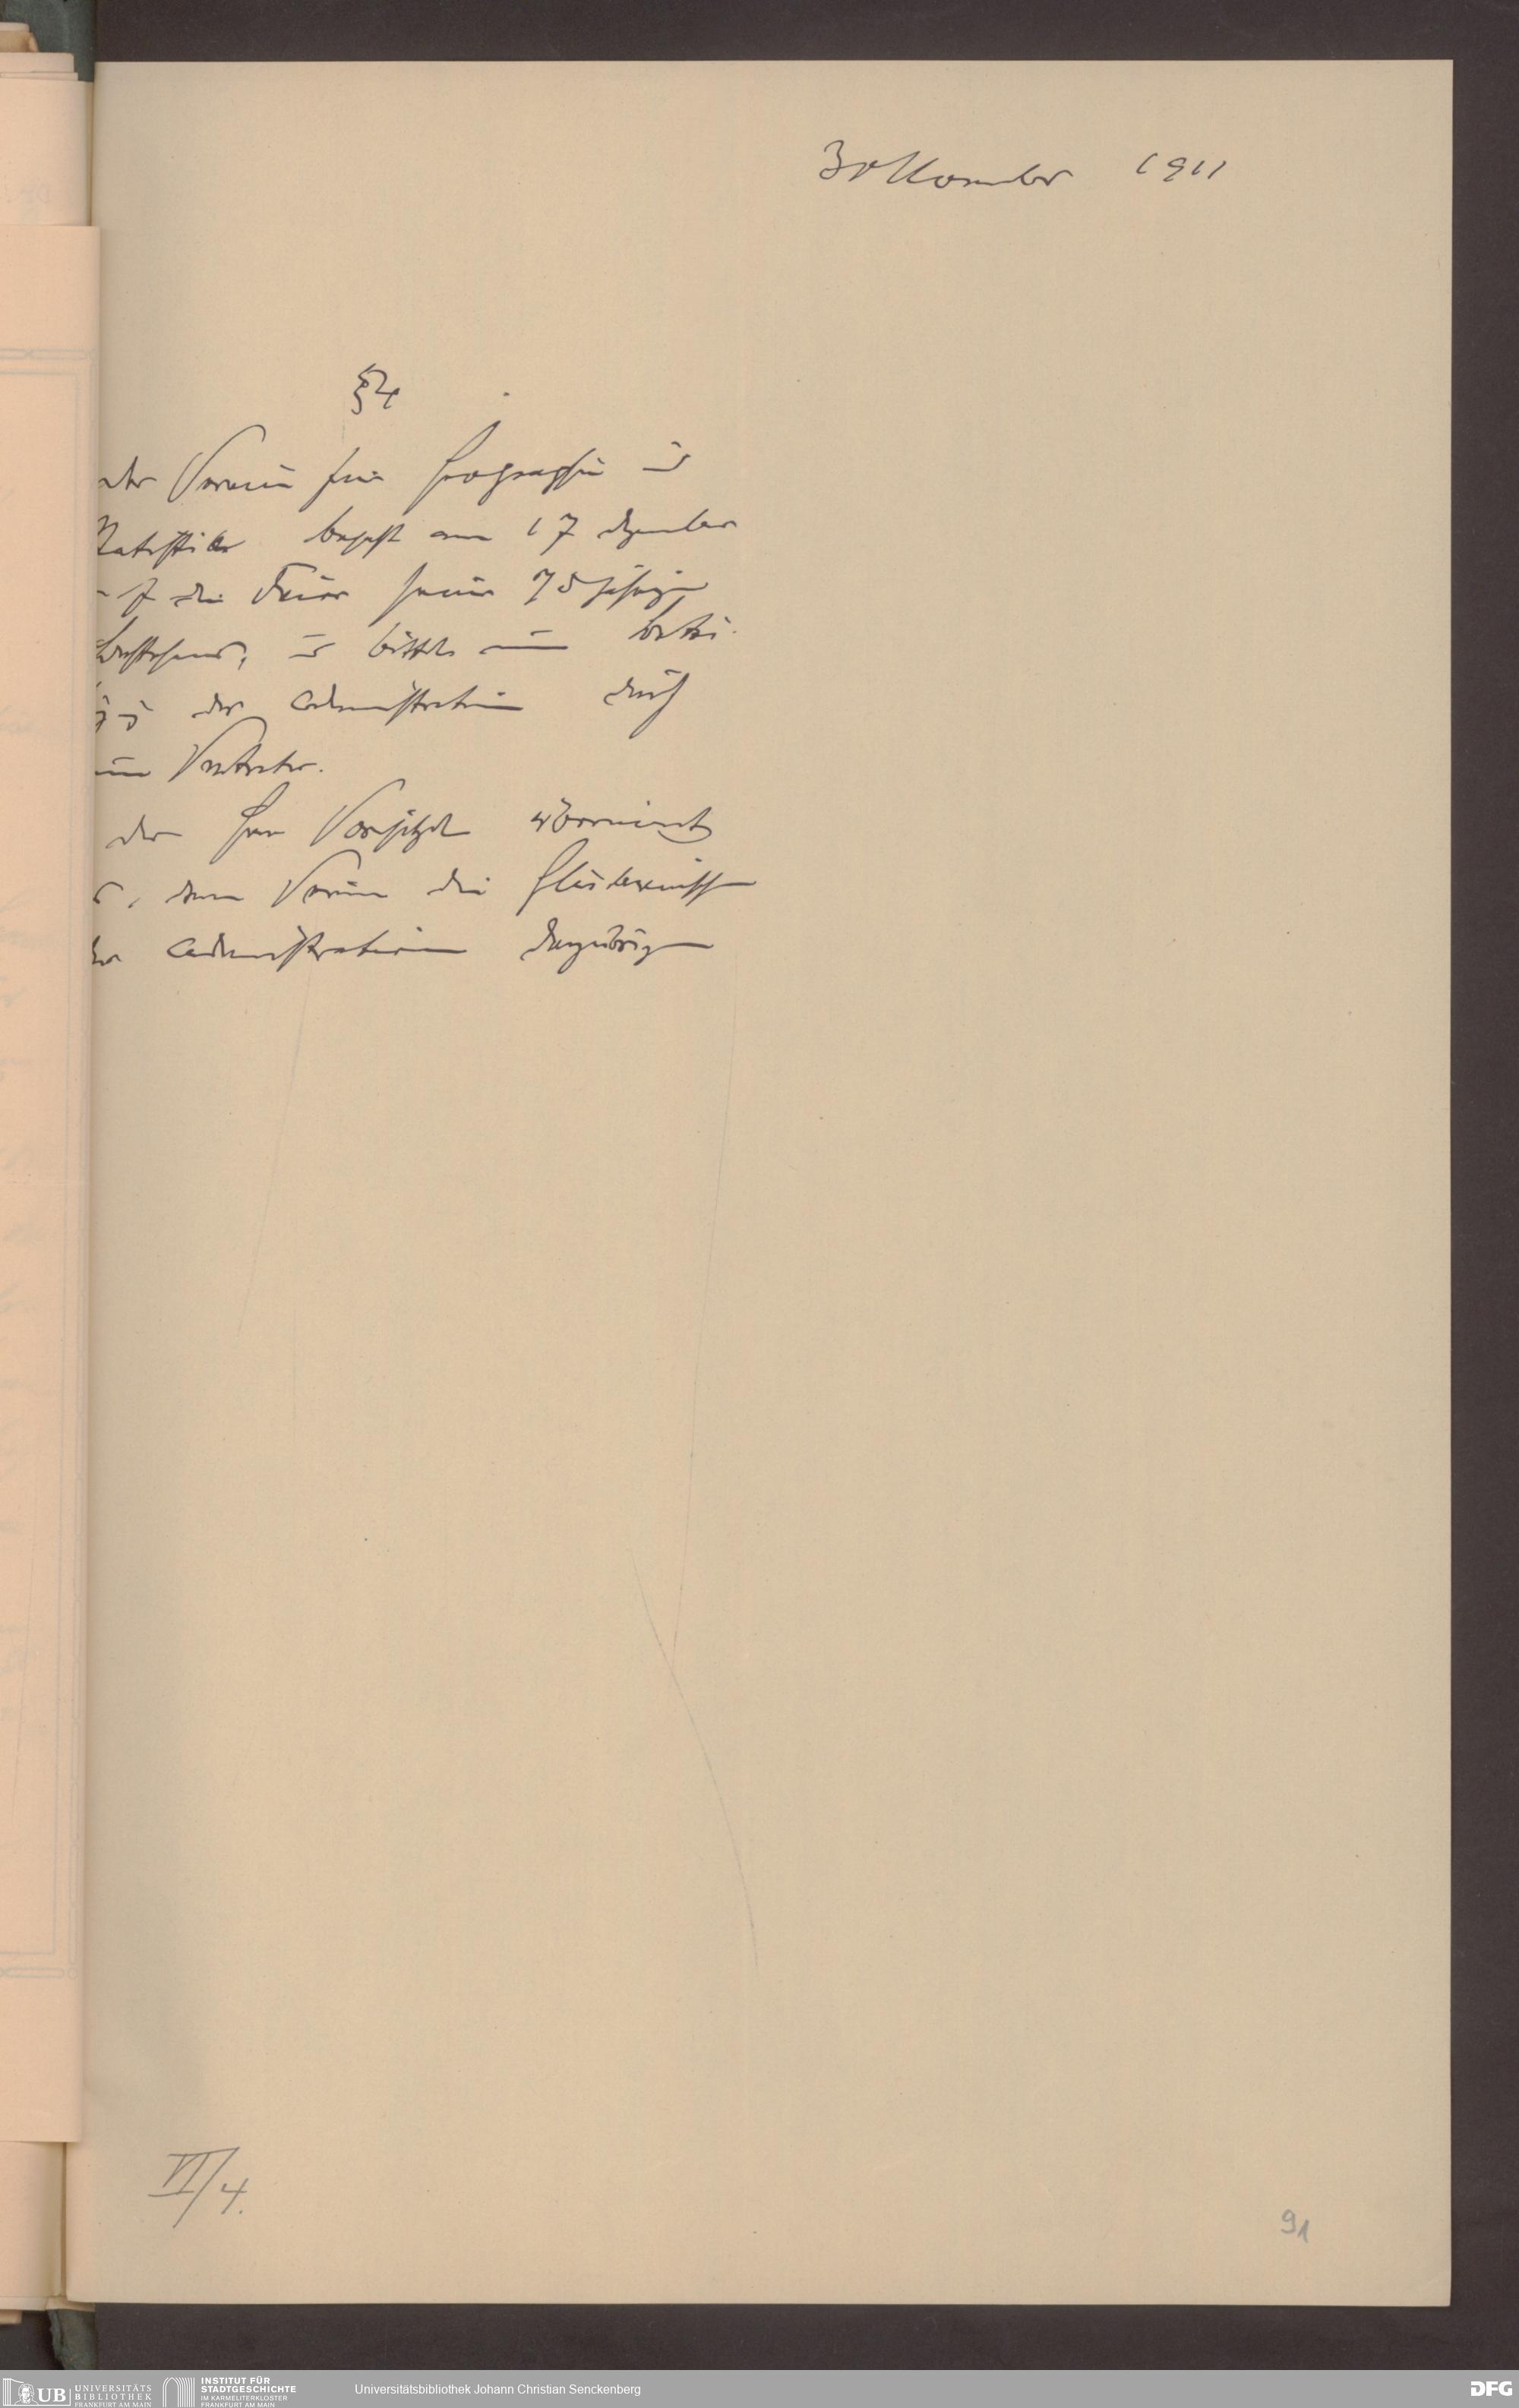 30 November 1911
§4
der Verein für Geographie und
Statistik begeht am 17 Dezember
die Feier seines 75jährigen
Bestehens, und bittet um Betei-
der Administration durch
einen Vertreter.
der Herr Vorsitzende übernimmt
es, dem Verein die Glückwünsche
der Administration darzubringen
VI/4.
91
UB UNIVERSITÄTS
BIBLIOTHEK
FRANKFURT AM MAIN
INSTITUT FÜR
STADTGESCHICHTE
IM KARMELITERKLOSTER
FRANKFURT AM MAIN
Universitätsbibliothek Johann Christian Senckenberg
DFG